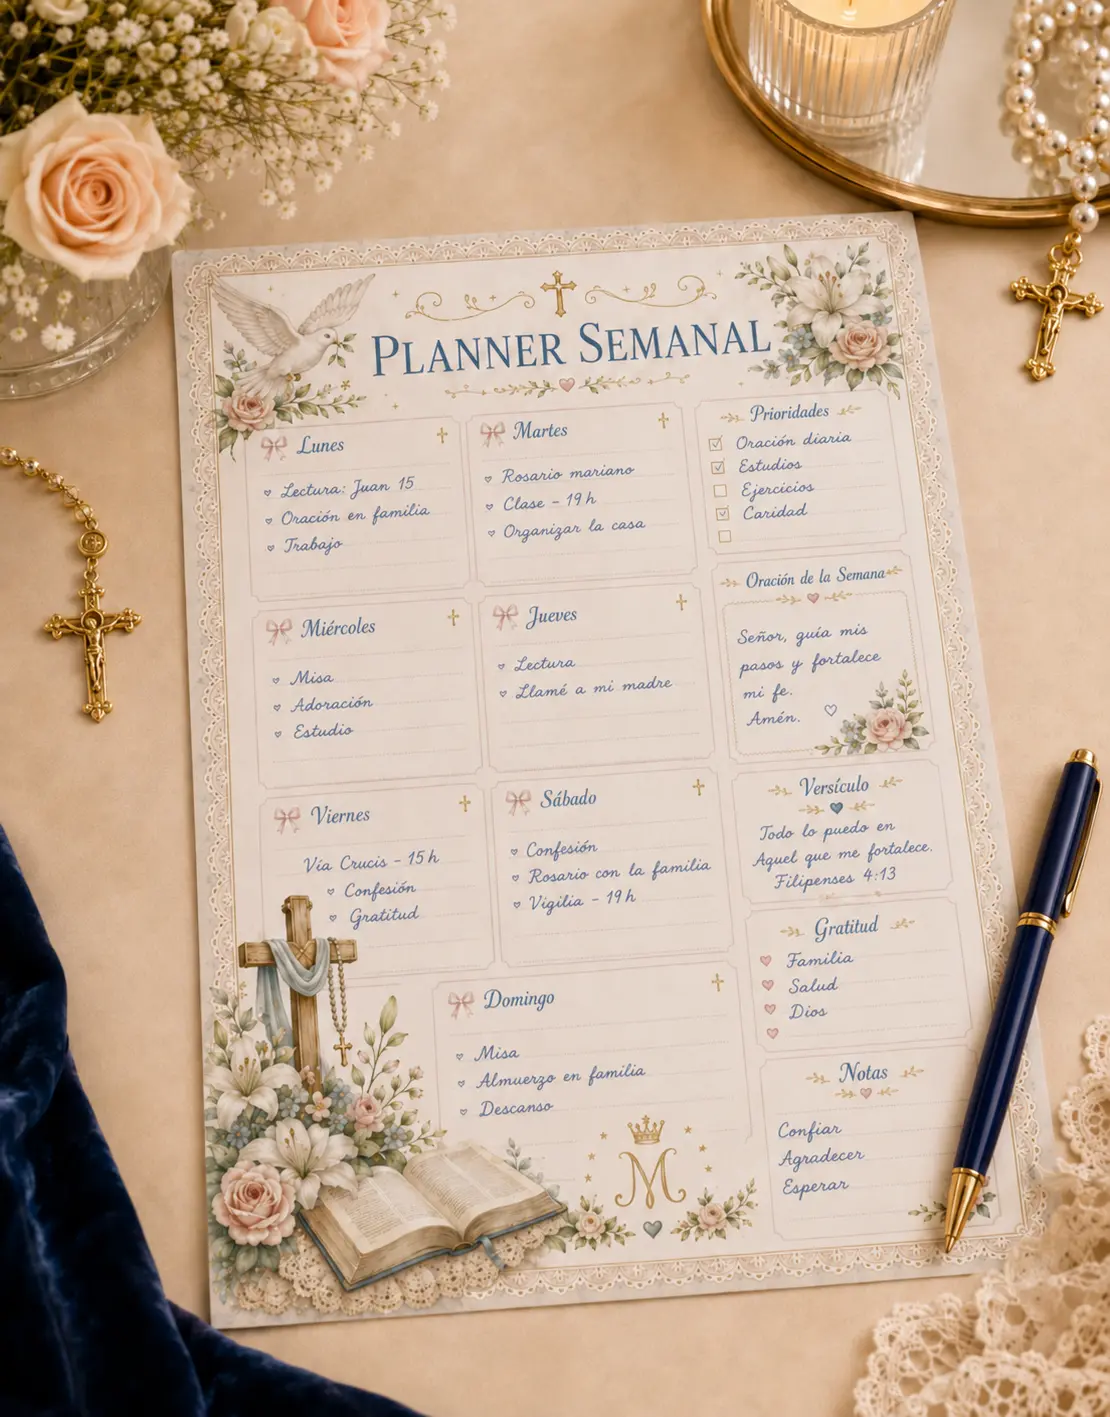 PLANNER SEMANAL
Lunes
Lectura: Juan 15
Oración en familia
Trabajo
Martes
Rosario mariano
Clase - 19 h
Organizar la casa
Prioridades
Oración diaria
Estudios
Ejercicios
Caridad
Miércoles
Misa
Adoración
Estudio
Jueves
Lectura
Llamé a mi madre
Oración de la Semana
Señor, guía mis
pasos y fortalece
mi fe.
Amén.
Viernes
Vía Crucis - 15 h
Confesión
Gratitud
Sábado
Confesión
Rosario con la familia
Vigilia - 19 h
Versículo
Todo lo puedo en
Aquel que me fortalece.
Filipenses 4:13
Gratitud
Familia
Salud
Dios
Domingo
Misa
Almuerzo en familia
Descanso
M
Notas
Confiar
Agradecer
Esperar